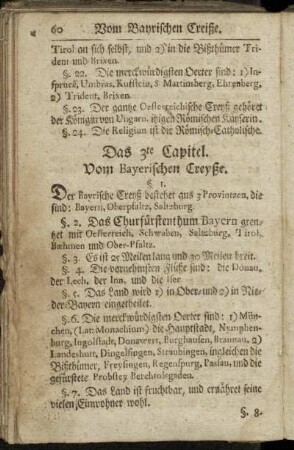 60 Vom Bayrischen Creiße.
Tirol an sich selbst, und 2) in die Bißthümer Tri-
dent und Brixen.
§. 22. Die merckwürdigsten Oerter sind: 1) In-
spruck, Umbras, Kuffstein, S Martinsberg, Ehrenberg,
2) Trident, Brixen.
§. 23. Der gantze Oesterreichische Creyß gehöret
der Königin von Ungarn, itzigen Römischen Kayserin.
§. 24. Die Religion ist die Römisch-Catholische.
Das 3te Capitel.
Vom Bayerischen Creyße.
§ 1.
Der Bayrische Creyß bestehet aus 3 Provintzen, die
sind: Bayern, Oberpfaltz, Saltzburg.
§. 2. Das Churfürstenthum Bayern gren-
tzet mit Oesterreich, Schwaben, Saltzburg, Tirol,
Bœhmen und Ober-Pfaltz.
§. 3. Es ist 25 Meilen lang und 30 Meilen breit.
§. 4. Die vornehmsten Flüße sind: die Donau,
der Lech, der Inn, und die Iser.
§. 5. Das Land wird 1) in Ober- und 2) in Nie-
der-Bayern eingetheilet.
§. 6. Die merckwürdigsten Oerter sind: 1) Mün-
chen, (Lat: Monachium) die Hauptstadt, Nymphen-
burg, Ingolstadt, Donawert, Burghausen, Braunau, 2)
Landeshutt, Dingelfingen, Straubingen, ingleichen die
Bißthümer, Freysingen, Regenspurg, Passau, und die
gefürstete Probstey Berchtolsgaden.
§. 7. Das Land ist fruchtbar, und ernähret seine
vielen Einwohner wohl.
§. 8.